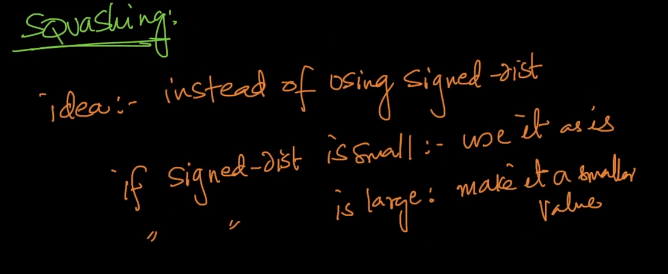 Squashing:
idea:- instead of using signed-dist
if signed-dist is small:- use it as is
" " is large: make it a smaller
value